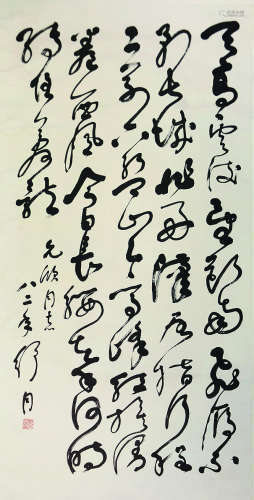 天高雲淡望断南飛雁不
到长城非好漢屈指行程
二万六盘山上高峰红旗漫
卷西風今日長缨在手何时
缚住苍龍
同志
八二年舒同